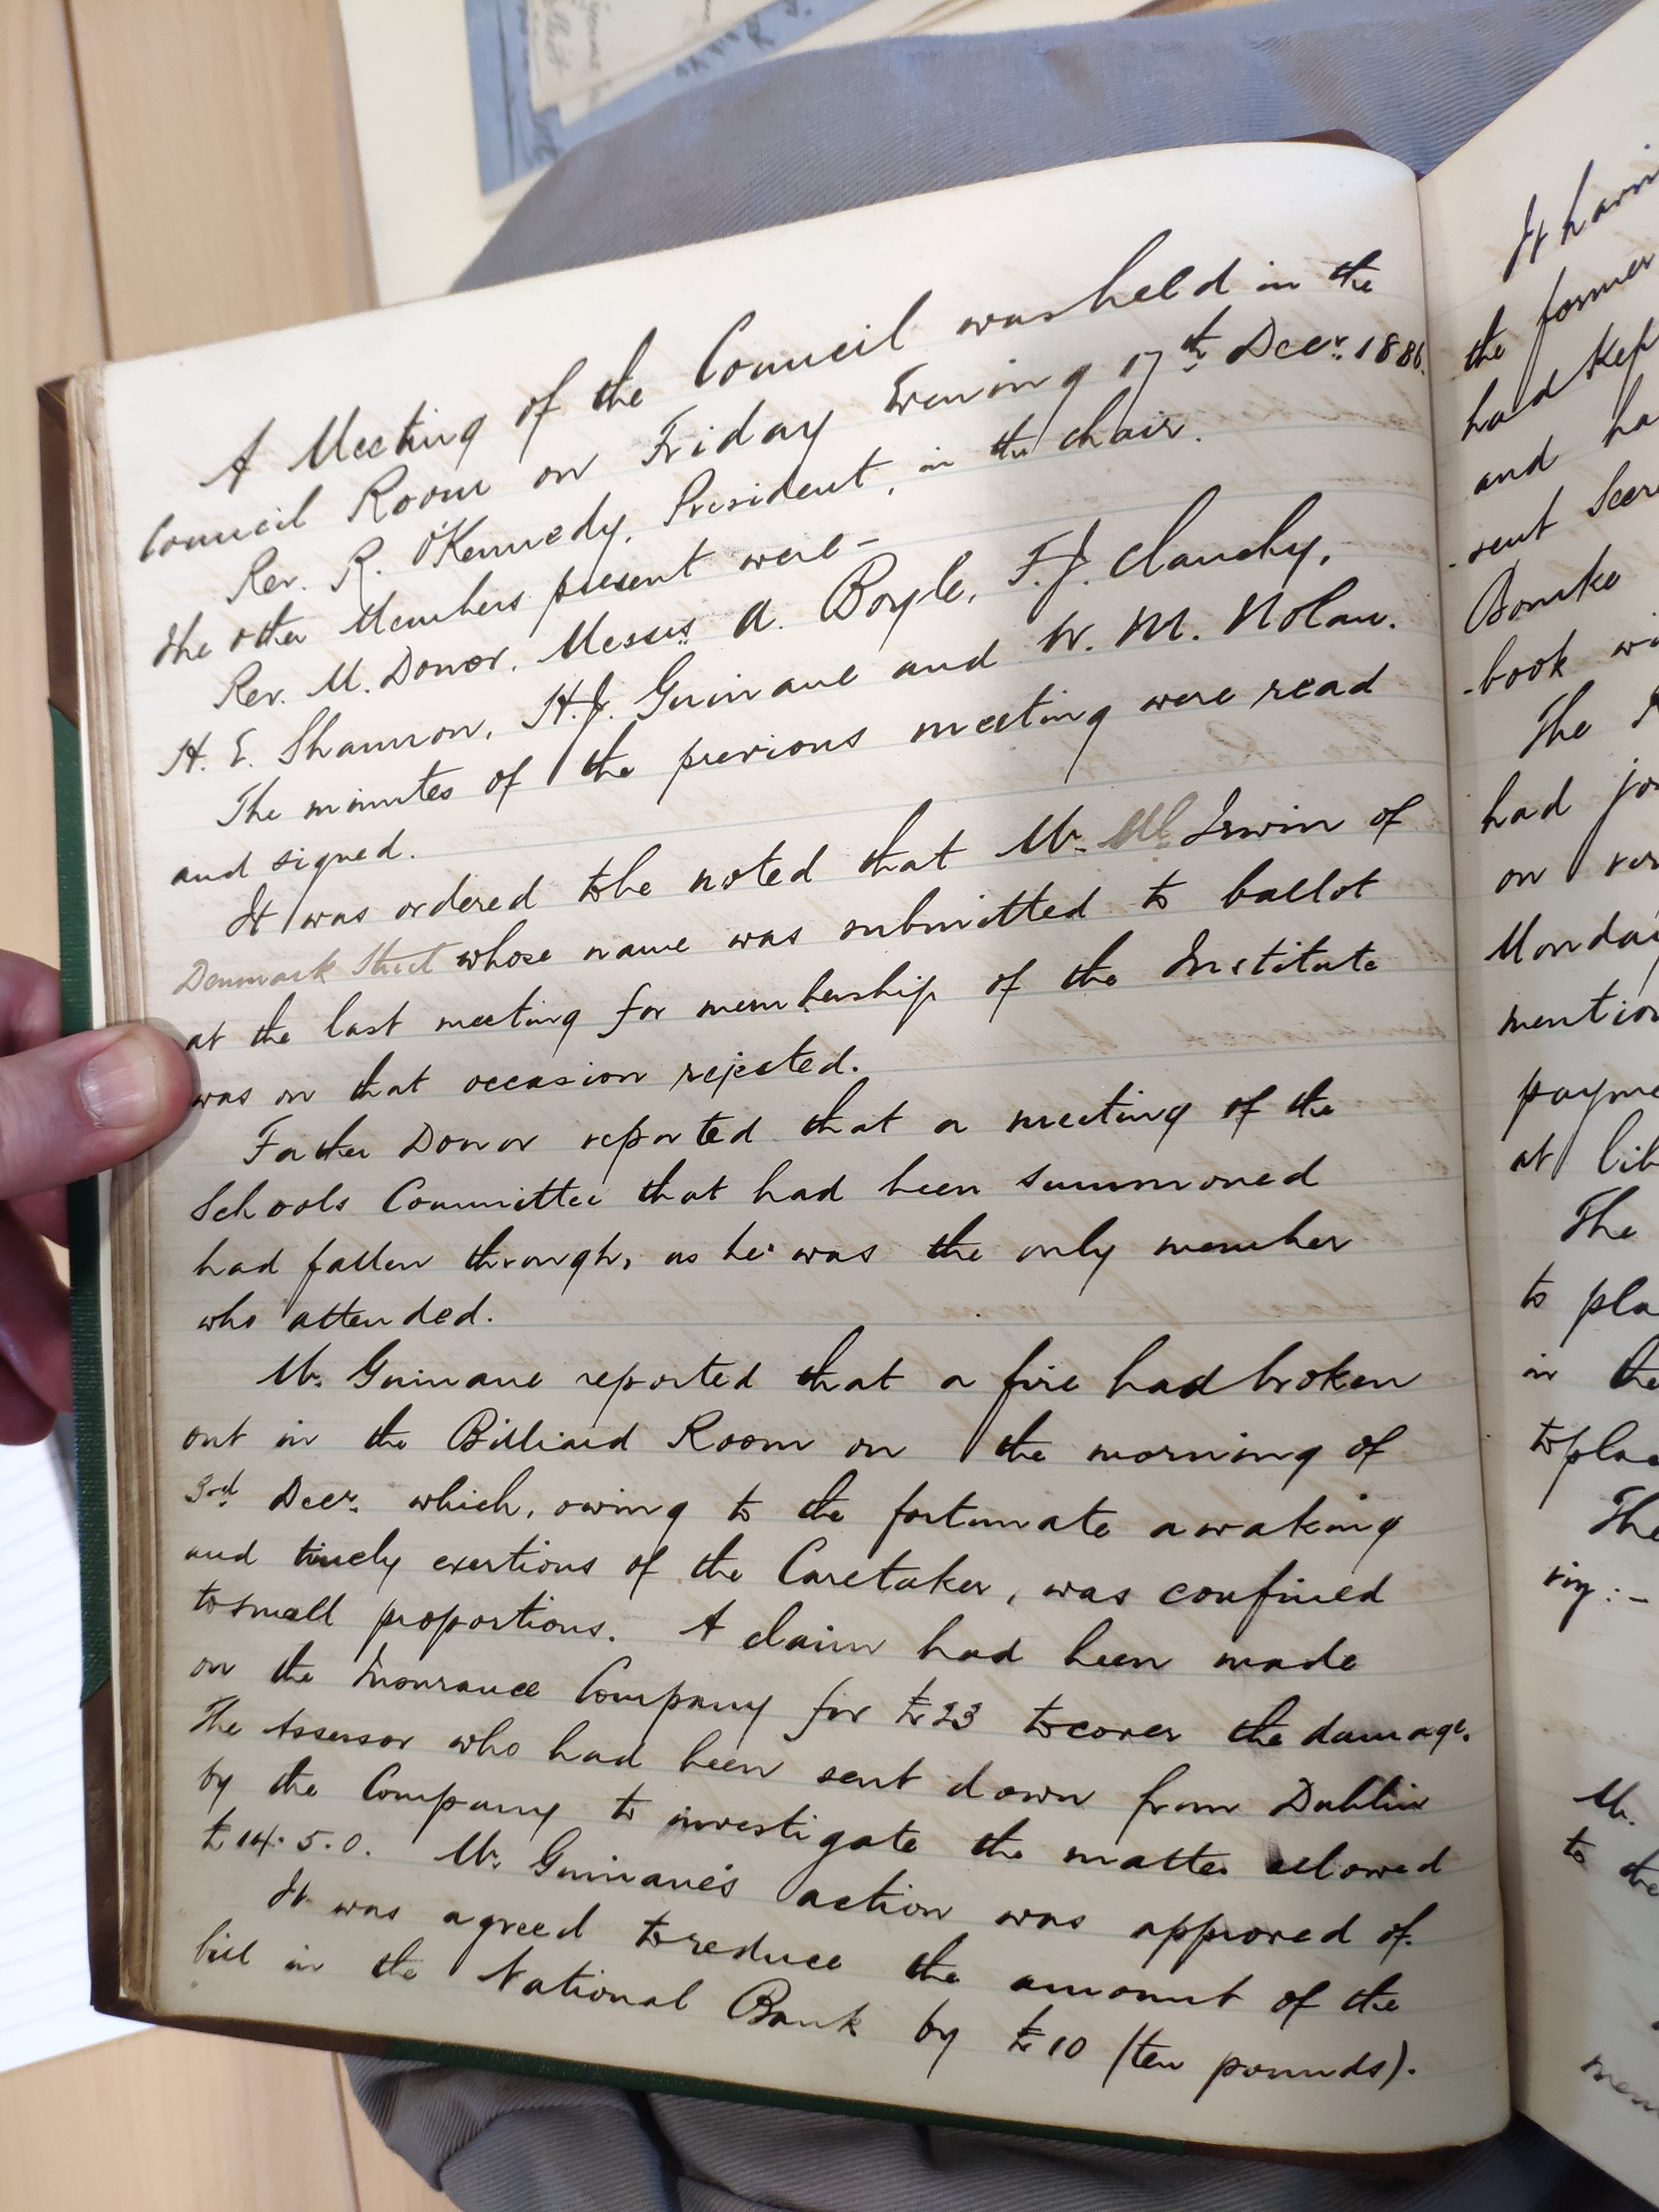 A Meeting of the Council was held in the
Council Room on Friday Evening 17th Decr. 1886.
Rev. R. O'Kennedy, President, in the chair.
the other Members present were-
Rev. M. Donor, Messrs A. Boyle, F.J. Clanchy,
H. E. Shannon, H.J. Guinane and W. M. Nolan.
The minutes of the previous meeting were read
and signed.
It was ordered to be noted that Mr. Irwin of
Denmark Street whose name was submitted to ballot
at the last meeting for membership of the Institute
was on that occasion rejected.
Father Donor reported that a meeting of the
Schools Committee that had been summoned
had fallen through, as he was the only member
who attended.
Mr. Guinane reported that a fire had broken
out in the Billiard Room on the morning of
3rd Decr. which, owing to the fortunate awaking
and timely exertions of the Caretaker, was confined
to small proportions. A claim had been made
on the Insurance Company for £23 to cover the damage.
The Assessor who had been sent down from Dublin
by the Company to investigate the matter allowed
£14. 5. 0. Mr. Guinane's action was approved of.
It was agreed to reduce the amount of the
bill in the National Bank by £10 (ten pounds).
the former
had kep
and ha
book wi
The
had jo
on
mention
payme
at lib
The
to pla
in the
to plac
The
viz:-
Mr.
to the